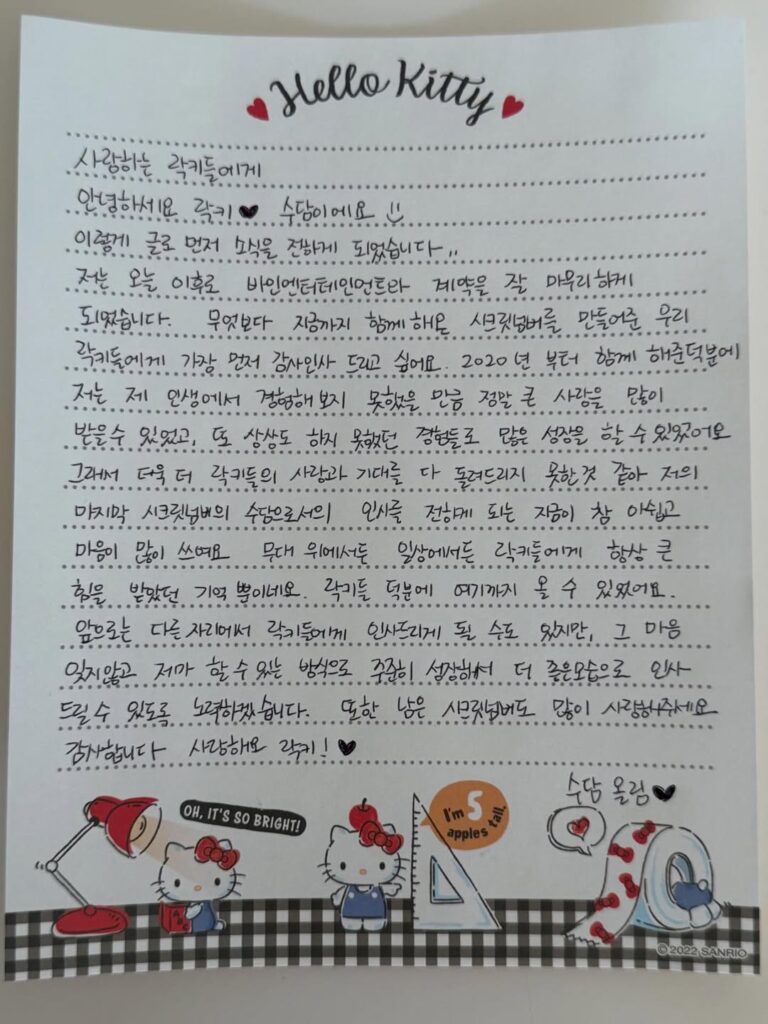 Hello Kitty
사랑하는 락키들에게
안녕하세요 락키♥ 수담이에요 :)
이렇게 글로 먼저 소식을 전하게 되었습니다..
저는 오늘 이후로 바인엔터테인먼트와 계약을 잘 마무리하게
되었습니다. 무엇보다 지금까지 함께해온 시크릿넘버를 만들어준 우리
락키들에게 가장 먼저 감사인사 드리고 싶어요. 2020년 부터 함께 해준덕분에
저는 제 인생에서 경험해보지 못했을 만큼 정말 큰 사랑을 많이
받을수 있었고, 또 상상도 하지 못했던 경험들로 많은 성장을 할 수 있었어요
그래서 더욱 더 락키들의 사랑과 기대를 다 돌려드리지 못한것 같아 저의
마지막 시크릿넘버의 수담으로서의 인사를 전하게 되는 지금이 참 아쉽고
마음이 많이 쓰여요 무대 위에서든 일상에서든 락키들에게 항상 큰
힘을 받았던 기억 뿐이네요. 락키들 덕분에 여기까지 올 수 있었어요.
앞으로는 다른 자리에서 락키들에게 인사드리게 될 수도 있지만, 그 마음
잊지않고 저가 할 수 있는 방식으로 꾸준히 성장해서 더 좋은모습으로 인사
드릴 수 있도록 노력하겠습니다. 또한 남은 시크릿넘버도 많이 사랑해주세요
감사합니다 사랑해요 락키! ♥
수담 올림♥
OH, IT'S SO BRIGHT!
I'm 5
apples tall.
ABC
©2022 SANRIO